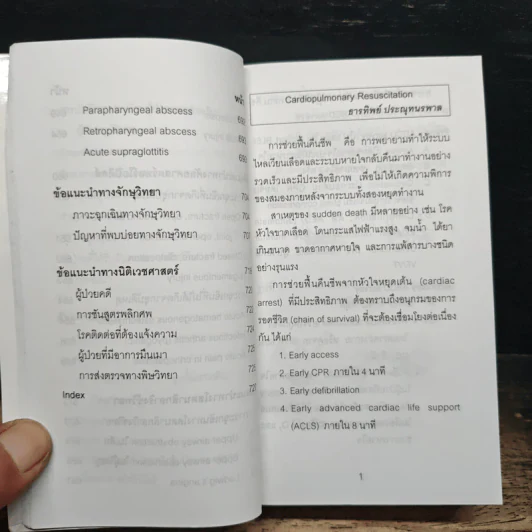 หน้า
Parapharyngeal abscess 692
Retropharyngeal abscess 693
Acute supraglottitis 693
ข้อแนะนำทางจักษุวิทยา 704
ภาวะฉุกเฉินทางจักษุวิทยา 704
ปัญหาที่พบบ่อยทางจักษุวิทยา
ข้อแนะนำทางนิติเวชศาสตร์ 719
ผู้ป่วยคดี
การชันสูตรพลิกศพ
โรคติดต่อที่ต้องแจ้งความ
ผู้ป่วยที่มีอาการมึนเมา
การส่งตรวจทางพิษวิทยา
Index
Cardiopulmonary Resuscitation
ธารทิพย์ ประณุทนรพาล
การช่วยฟื้นคืนชีพ คือ การพยายามทำให้ระบบ
ไหลเวียนเลือดและระบบหายใจกลับคืนมาทำงานอย่าง
รวดเร็วและมีประสิทธิภาพ เพื่อไม่ให้เกิดความพิการ
ของสมองภายหลังจากระบบทั้งสองหยุดทำงาน
สาเหตุของ sudden death มีหลายอย่าง เช่น โรค
หัวใจขาดเลือด โดนกระแสไฟฟ้าแรงสูง จมน้ำ ได้ยา
เกินขนาด ขาดอากาศหายใจ และการแพ้สารบางชนิด
อย่างรุนแรง
การช่วยฟื้นคืนชีพจากหัวใจหยุดเต้น (cardiac
arrest) ที่มีประสิทธิภาพ ต้องทราบถึงอนุกรมของการ
รอดชีวิต (chain of survival) ที่จะต้องเชื่อมโยงต่อเนื่อง
กัน ได้แก่
1. Early access
2. Early CPR ภายใน 4 นาที
3. Early defibrillation
4. Early advanced cardiac life support
(ACLS) ภายใน 8 นาที
1